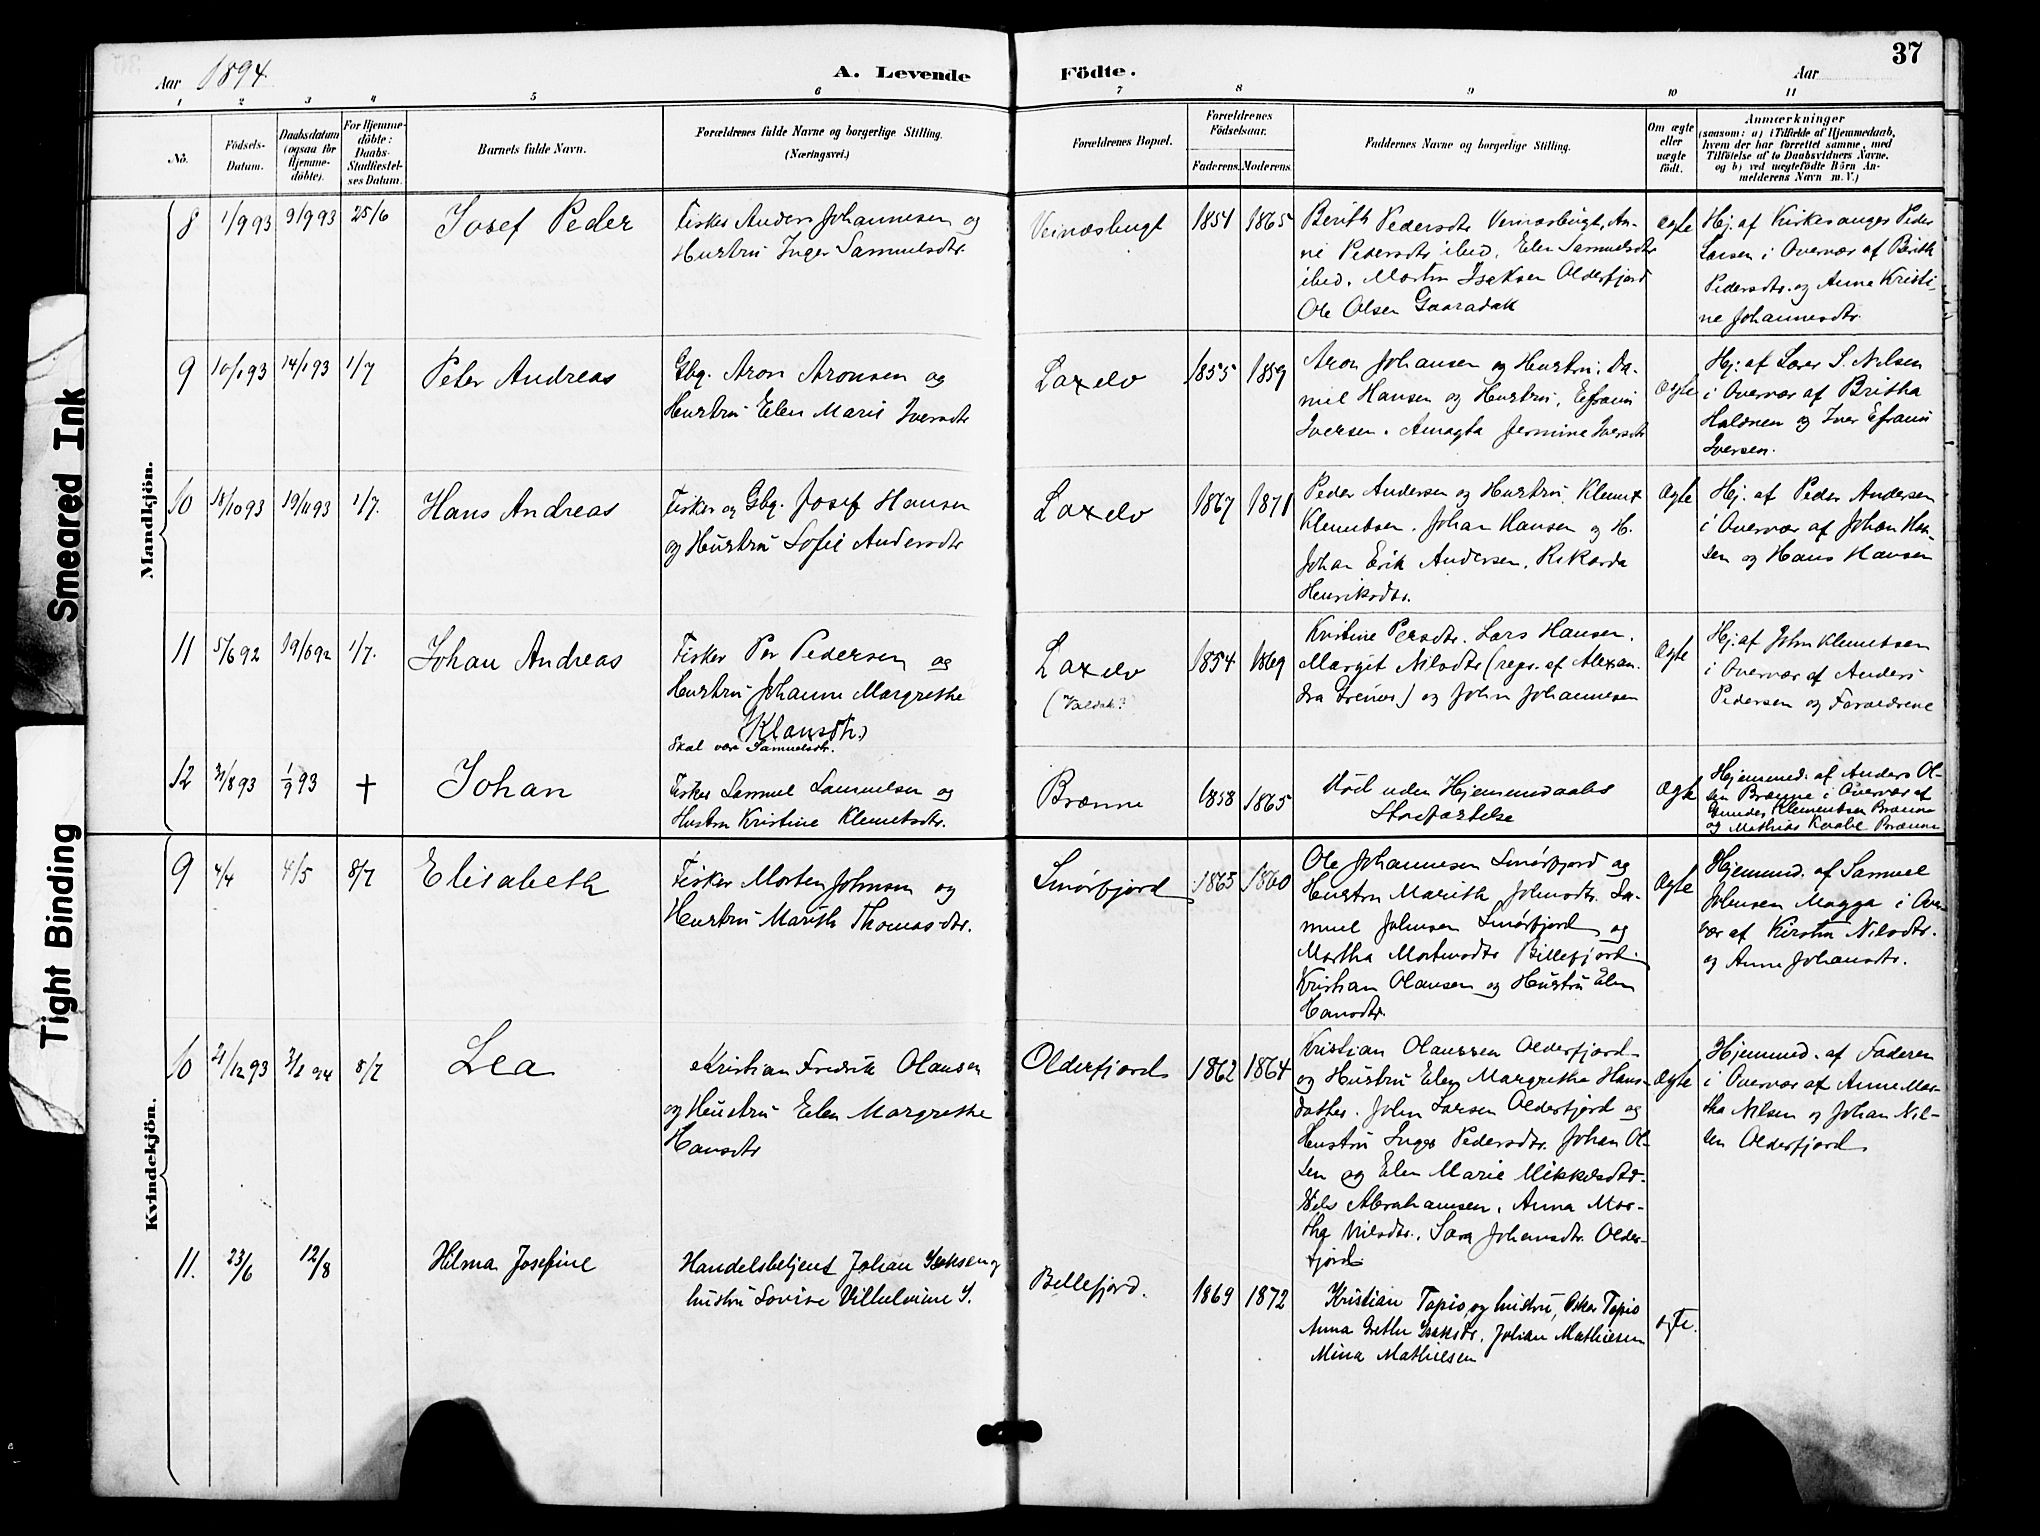 37
Aar 1894.
A. Levende
Födte.
Aar
1 2 3 4 5 6 7 8 9 10 11
No.
Födsels-
Datum.
Daabsdatum
(ogsaa for
Hjemme-
döbte).
For Hjemme-
döbte:
Daabs-
Stadfæstel-
ses Datum.
Barnets fulde Navn.
Forældrenes fulde Navne og borgerlige Stilling.
(Næringsvei.)
Forældrenes Bopæl.
Forældrenes
Födselsaar.
Faderens.
Moderens.
Faddernes Navne og borgerlige Stilling.
Om ægte
eller
uægte
født.
Anmærkninger
(saasom: a) i Tilfælde af Hjemmedaab,
hvem der har forrettet samme, med
Tilföielse af to Daabsvidners Navne,
og b) ved uægtefödte Börn An-
melderens Navn m. V.)
Smeared Ink
Tight Binding
Mandkjön.
Kvindekjön.
8
1/9 93
9/9 93
25/6
Josef Peder
Fisker Anders Johannesen og
Hustru Inger Samuelsdtr.
1854
1865
Berith Pedersdtr
ne Pedersdtr ibid. Elen Samuelsdtr
ibid. Morten Isaksen Olderfjord
Ole Olsen
Ægte
Hj. af Kirkesanger Peder
Larsen i Overvær af Berith
Pedersdtr. og Anne Kristi-
ne Johannesdtr.
9
10/1 93
14/1 93
1/7
Peter Andreas
Gbg. Aron Aronsen og
Hustru Elen Marie Iversdtr
Laxelv
1855
1859
Aron Johansen og Hustru, Da-
niel Hansen og Hustru, Efraim
Iversen. Iversdtr
Ægte
Hj. af Lærer S. Nilsen
i Overvær af Britha
Haldnen og Iver Efraim
Iversen.
10
18/10 93
19/11 93
1/7.
Hans Andreas
Fisker og Gbg. Josef Hansen
og Hustru Sofie Andersdtr
Laxelv
1867
1871
Peder Andersen og Hustru, Klemet
Klemetsen. Johan Hansen og H.
Johan Erik Andersen. Rikarda
Henriksdtr.
Ægte
Hj. af Peder Andersen
i Overvær af Johan Han-
sen og Hans Hansen
11
5/6 92
19/6 92
1/7.
Johan Andreas
Fisker Per Pedersen og
Hustru Johanne Margrethe
(Klausdtr.)
Skal være Samuelsdtr.
Laxelv
(Valdak?
1854
1869
Kristine Persdtr. Lars Hansen.
Margit Nilsdtr (repr. af Alexan-
dra Grenor) og John Johannesen
Ægte
Hj. af John Klemetsen
i Overvær af Anders
Pedersen og Forældrene
12
31/8 93
1/9 93
†
Johan
Fisker Samuel Samuelsen og
Hustru Kristine Klemetsdtr.
Brænne
1858
1865
Död uden Hjemmedaabs
Stadfæstelse
Ægte
Hjemmed. af Anders Ol-
sen Brænne i Overvær af
Klemetsen Brænne
og Mathias Brænne
9
4/4
4/5
8/7
Elisabeth
Fisker Morten Johnsen og
Hustru Marith Thomas-dtr.
Smörfjord
1865
1860
Ole Johannesen Smörfjord og
Hustru Marith Johnsdtr. Sa-
muel Johnsen Smörfjord og
Martha Mortensdtr Billefjord.
Kristian Olausen og Hustru Elen
Hansdtr.
Ægte
Hjemmd. af Samuel
Johnsen Magga i Over-
vær af Kirsten Nilsdtr.
og Anne Johansdtr.
10
21/12 93
8/7
Lea
Kristian Fredrik Olausen
og Hustru Elen Margrethe
Hansdtr
Olderfjord
1862
1864
Kristian Olaussen Olderfjord
og Hustru Elen Margrethe Hans-
datter. John Larsen Olderfjord og
Hustru Inger Pedersdtr. Johan Ol-
sen og Elen Marie Mikkelsdtr.
Nils Abrahamsen, Anna Mar-
tha Nilsdtr., Sara Johansdtr. Older-
fjord.
Ægte
Hjemmed. af Faderen
i Overvær af Anne Mar-
tha Nilsen og Johan Nil-
sen Olderfjord
11.
23/6
12/8
Hilma Josefine
Handelsbetjent Johan Isaksen og
hustru Lovise Vilhelmine I.
Billefjord.
1869
1872
Kristian Tapio og hustru, Oskar Tapio
Anna Grethe Isaksdtr, Johan Mathiesen
Mina Mathiesen
ægte.